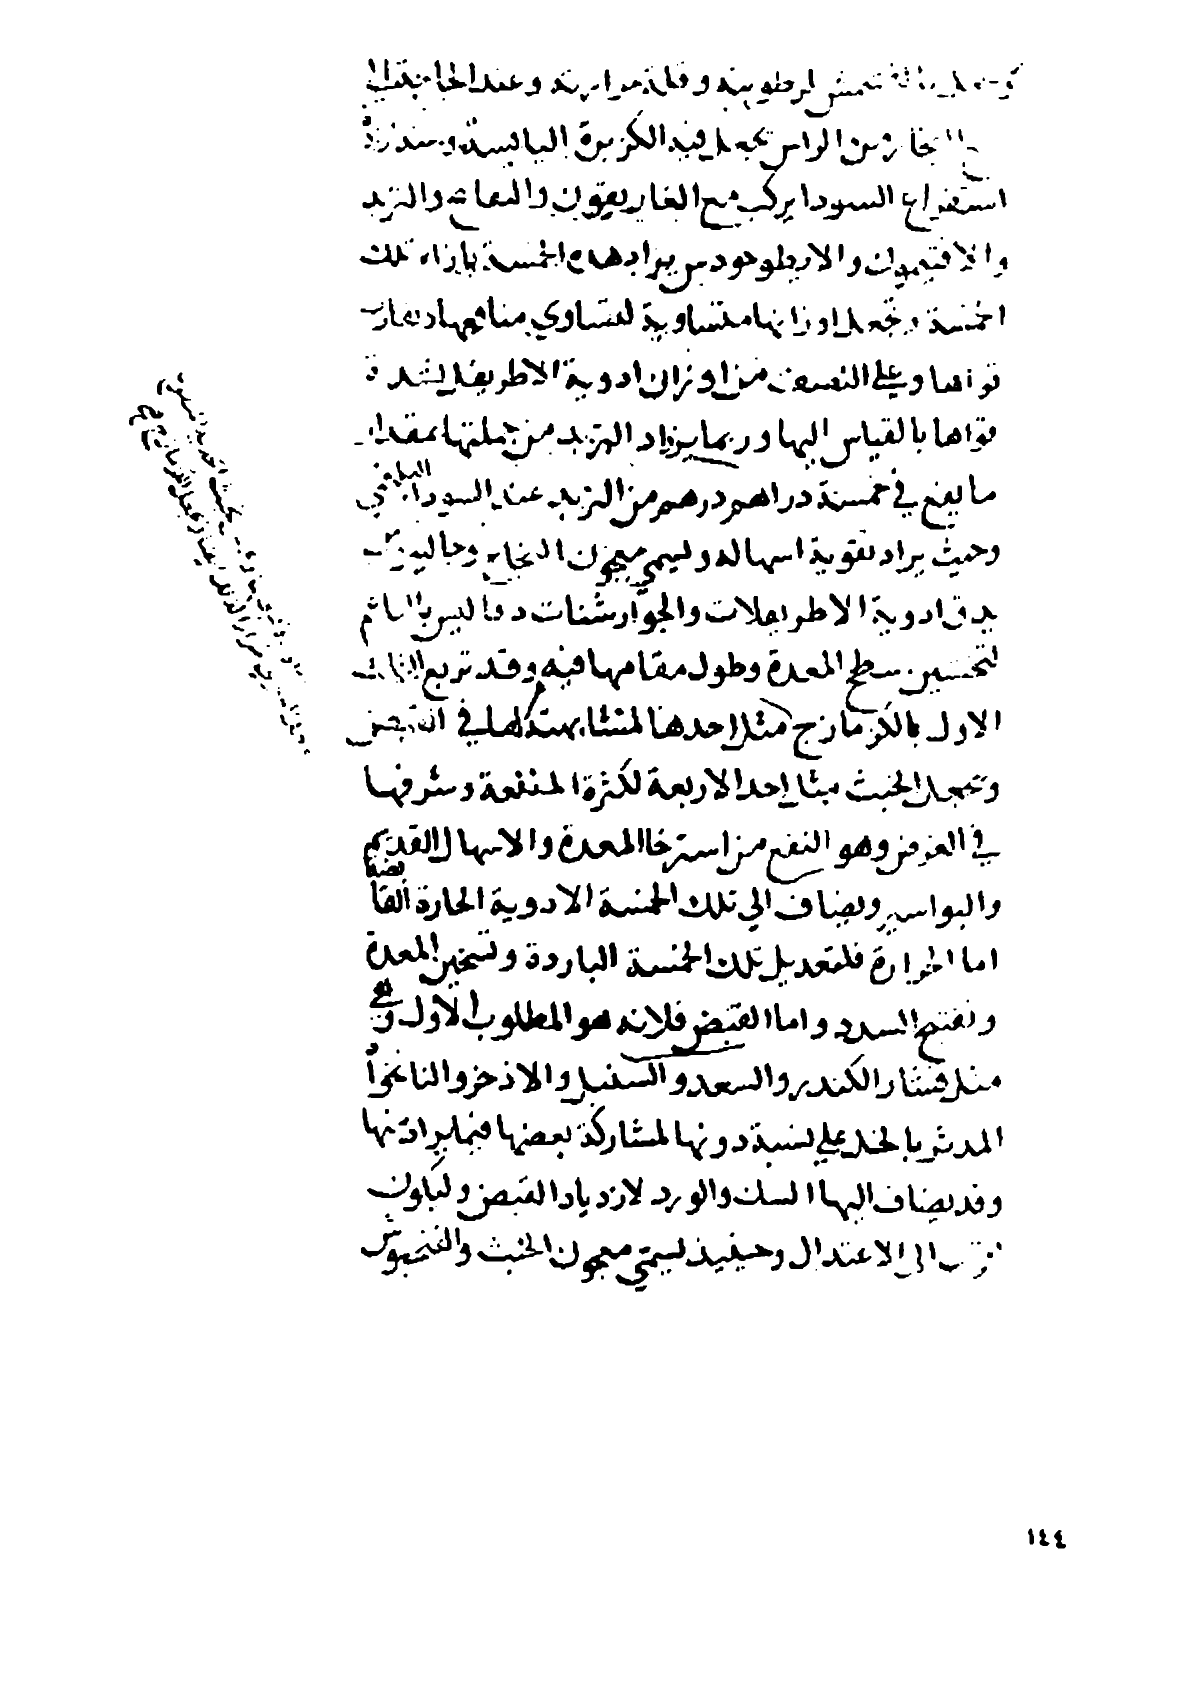 لرطوبته وقلة مرارته وعند الحاجة الى
البخار من الراس يجعل فيه الكزبرة اليابسة وعند ارادة
استفراغ السودا يركب مع الغاريقون والتربد
والافتيمون والاسطوخودس يراد هذه الخمسة بازاء تلك
الخمسة وتجعل اوزانها متساوية لتساوي منافعها وتقارب
قواها وعلى النصف من اوزان ادوية الاطريفل لشدة
قواها بالقياس اليها وربما يزاد التربد من جملتها بمقدار
ما يقع في خمسة دراهم درهم من التربد عند السودا البلغمي
وحيث يراد تقوية اسهاله ويسمى معجون النجاح وجالينوس
يدق ادوية الاطريفلات والجوارشنات دقا ليس بالناعم
لتحسين سطح المعدة وطول مقامها فيه وقد تربع الثلاث
الاول بالكزمازج مثل احدها لمشابهته لها في القبض
وتجعل الخبث مثل احد الاربعة لكثرة المنفعة وشرفها
في الغرض وهو النفع من استرخا المعدة والاسهال القديم
والبواسير ويضاف الى تلك الخمسة الادوية الحارة القابضة
اما الحرارة فلتعديل تلك الخمسة الباردة وتسخين المعدة
وتفتح السدد واما القبض فلانه هو المطلوب الاول
مثل قشار الكندر والسعد والسنبل والاذخر والنانخواه
المدبر بالخل على نسبة دونها لمشاركة بعضها فيما يراد منها
وقد يضاف اليها السك والورد لازدياد القبض وليكون
اقرب الى الاعتدال وحينئذ يسمى معجون الخبث والفنجنوش
١٤٤